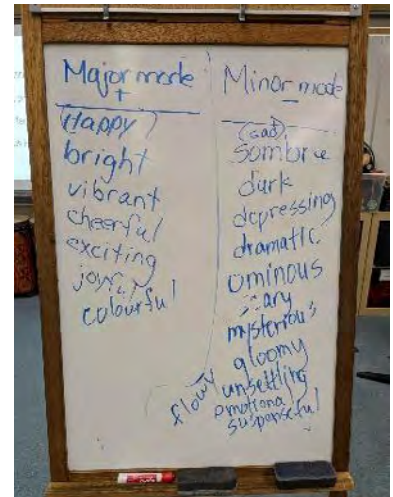 Major mode
+
(Happy)
bright
vibrant
cheerful
exciting
joyful
colourful
Minor mode
-
(sad)
sombre
dark
depressing
dramatic
ominous
scary
mysterious
gloomy
unsettling
flowy
emotional
suspenseful